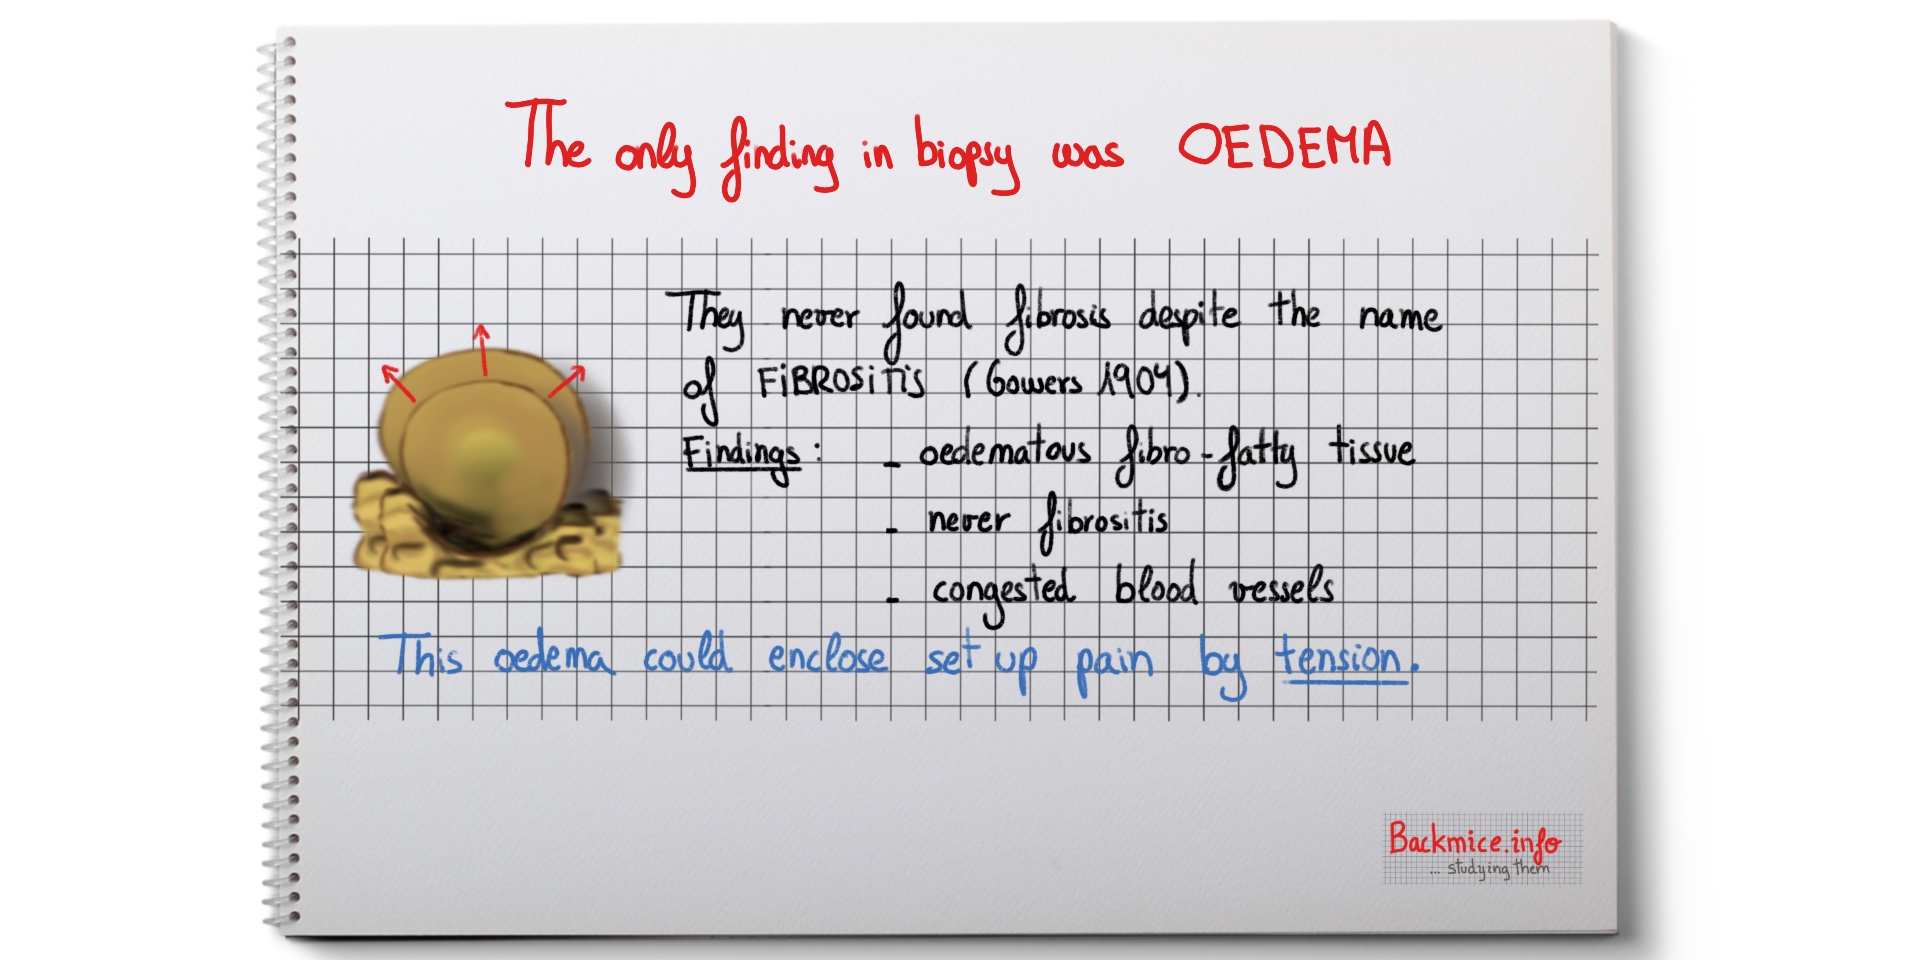 The only finding in biopsy was OEDEMA
They never found fibrosis despite the name
of FiBROSiTiS (Gowers 1904).
Findings: - oedematous fibro-fatty tissue
- never fibrositis
- congested blood vessels
This oedema could enclose set up pain by tension.
Backmice.info
... studying them